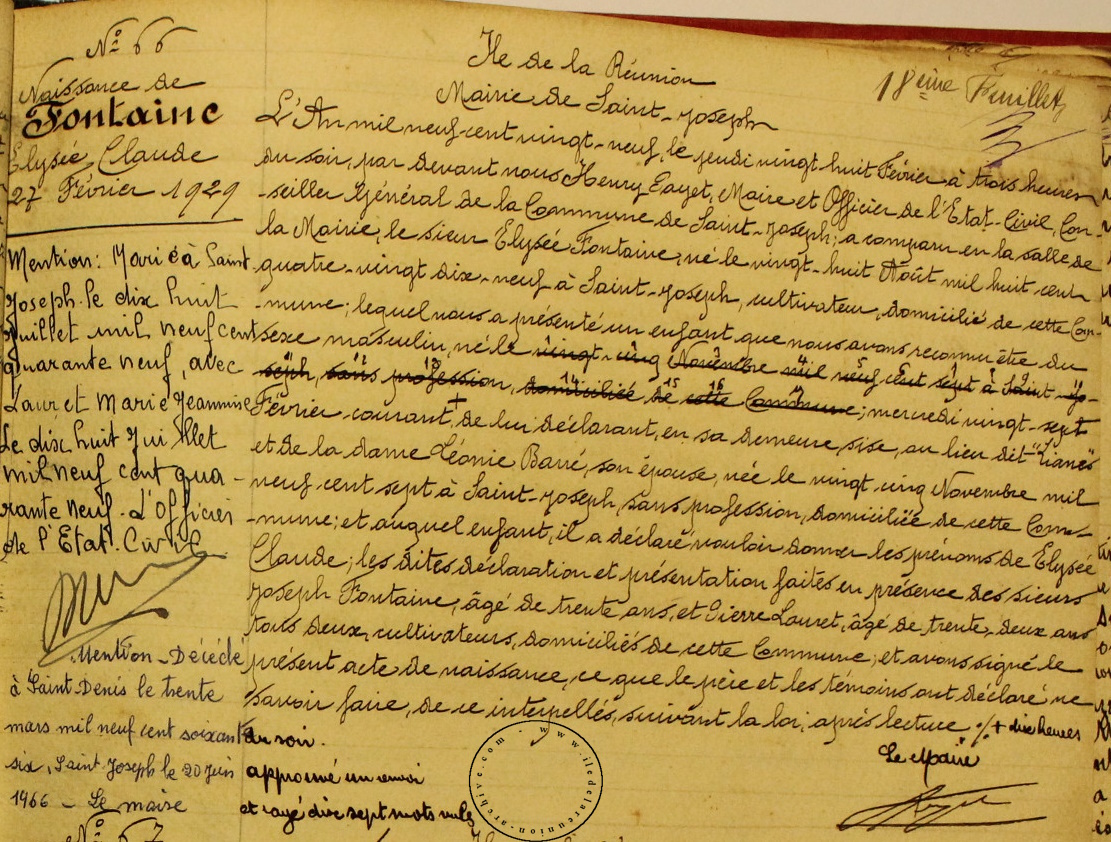 N° 66
Naissance de
Fontaine
Elysée, Claude
27 Février 1929
Mention: Marié à Saint
Joseph le dix huit
Juillet mil neuf cent
quarante neuf, avec
Lauret Marie Jeannine
Le dix huit Juillet
mil neuf cent qua-
rante neuf. L'Officier
de l'Etat-Civil
Mention - Décédé
à Saint Denis le trente
mars mil neuf cent soixante
six, Saint Joseph le 20 Juin
1966 - Le maire
N° 67
Ile de la Réunion
Mairie de Saint-Joseph
18ème Feuillet
L'An mil neuf-cent vingt-neuf, le jeudi vingt huit Février à trois heures
du soir, par devant nous Henry Payet, Maire et Officier de l'Etat-Civil, Con-
seiller Général de la Commune de Saint-Joseph; a comparu en la salle de
la Mairie, le sieur Elysée Fontaine, né le vingt-huit Août mil huit cent
quatre-vingt dix-neuf à Saint-Joseph, cultivateur, domicilié de cette Com-
mune; lequel nous a présenté un enfant que nous avons reconnu être du
sexe masculin, né le vingt-cinq Novembre mil neuf cent sept à Saint-Jo-
seph, sans profession, domiciliée de cette Commune; mercredi vingt-sept
Février courant + de lui déclarant, en sa demeure sise, au lieu dit "Lianes"
et de la dame Léonie Barré, son épouse, née le vingt cinq Novembre mil
neuf cent sept à Saint-Joseph, sans profession, domiciliée de cette Com-
mune; et auquel enfant, il a déclaré vouloir donner les prénoms de Elysée
Claude; les dites déclaration et présentation faites en présence des sieurs
Joseph Fontaine, âgé de trente ans, et Pierre Lauret, âgé de trente-deux ans
tous deux, cultivateurs, domiciliés de cette Commune; et avons signé le
présent acte de naissance, ce que le père et les témoins ont déclaré ne
savoir faire, de ce interpellés, suivant la loi, après lecture % + dix heures
du soir.
approuvé un renvoi
et rayé dix sept mots nuls
Le Maire
www.iledelareunion-archive.com